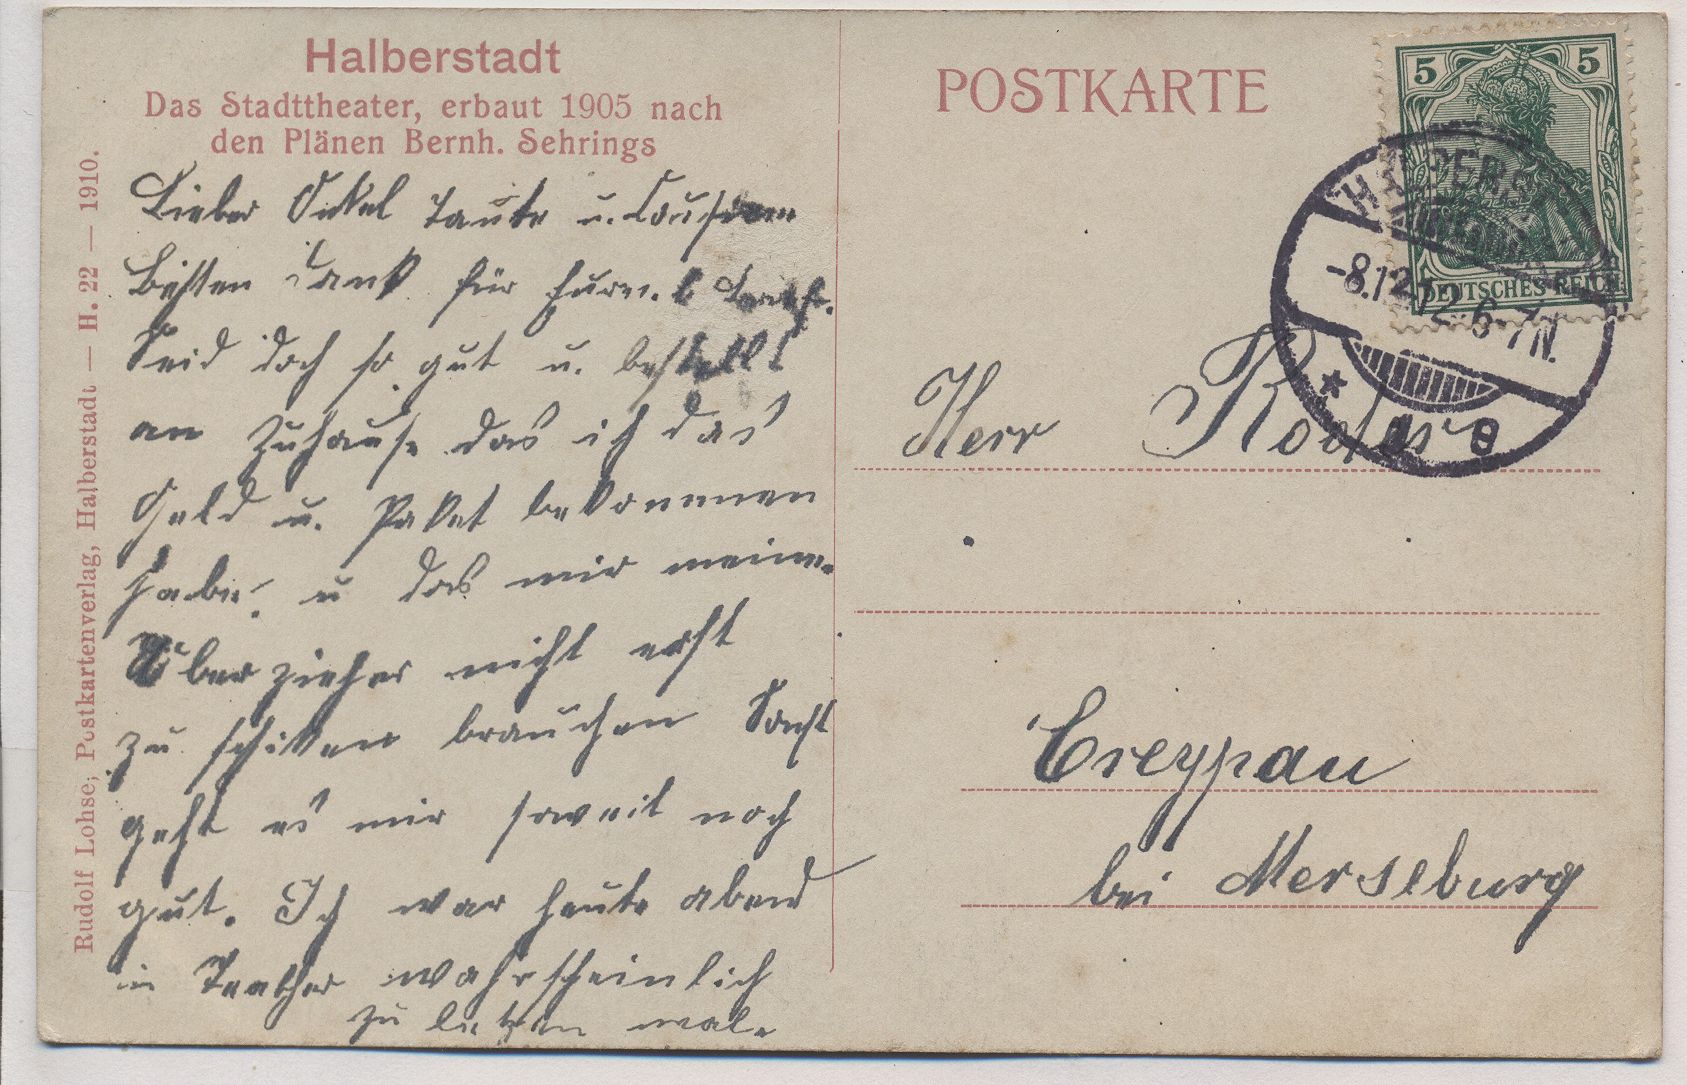 Halberstadt
Das Stadttheater, erbaut 1905 nach
den Plänen Bernh. Sehrings
Rudolf Lohse, Postkartenverlag, Halberstadt — H. 22 — 1910.
Lieber Onkel Tante u. Cousienen
Besten Dank für
Seid doch so gut u. bestellt
an Zuhause das ich das
Geld u. Paket bekommen
habe. u das mir meine
Überzieher nicht erst
zu schiken brauchen Sonst
geht es mir soweit noch
gut. Ich war heute abend
in Teather wahrscheinlich
zu letzen male
POSTKARTE
5 5
DEUTSCHES REICH
-8.12.12 6-7N.
* e
Herr Roder
Creypau
bei Merseburg